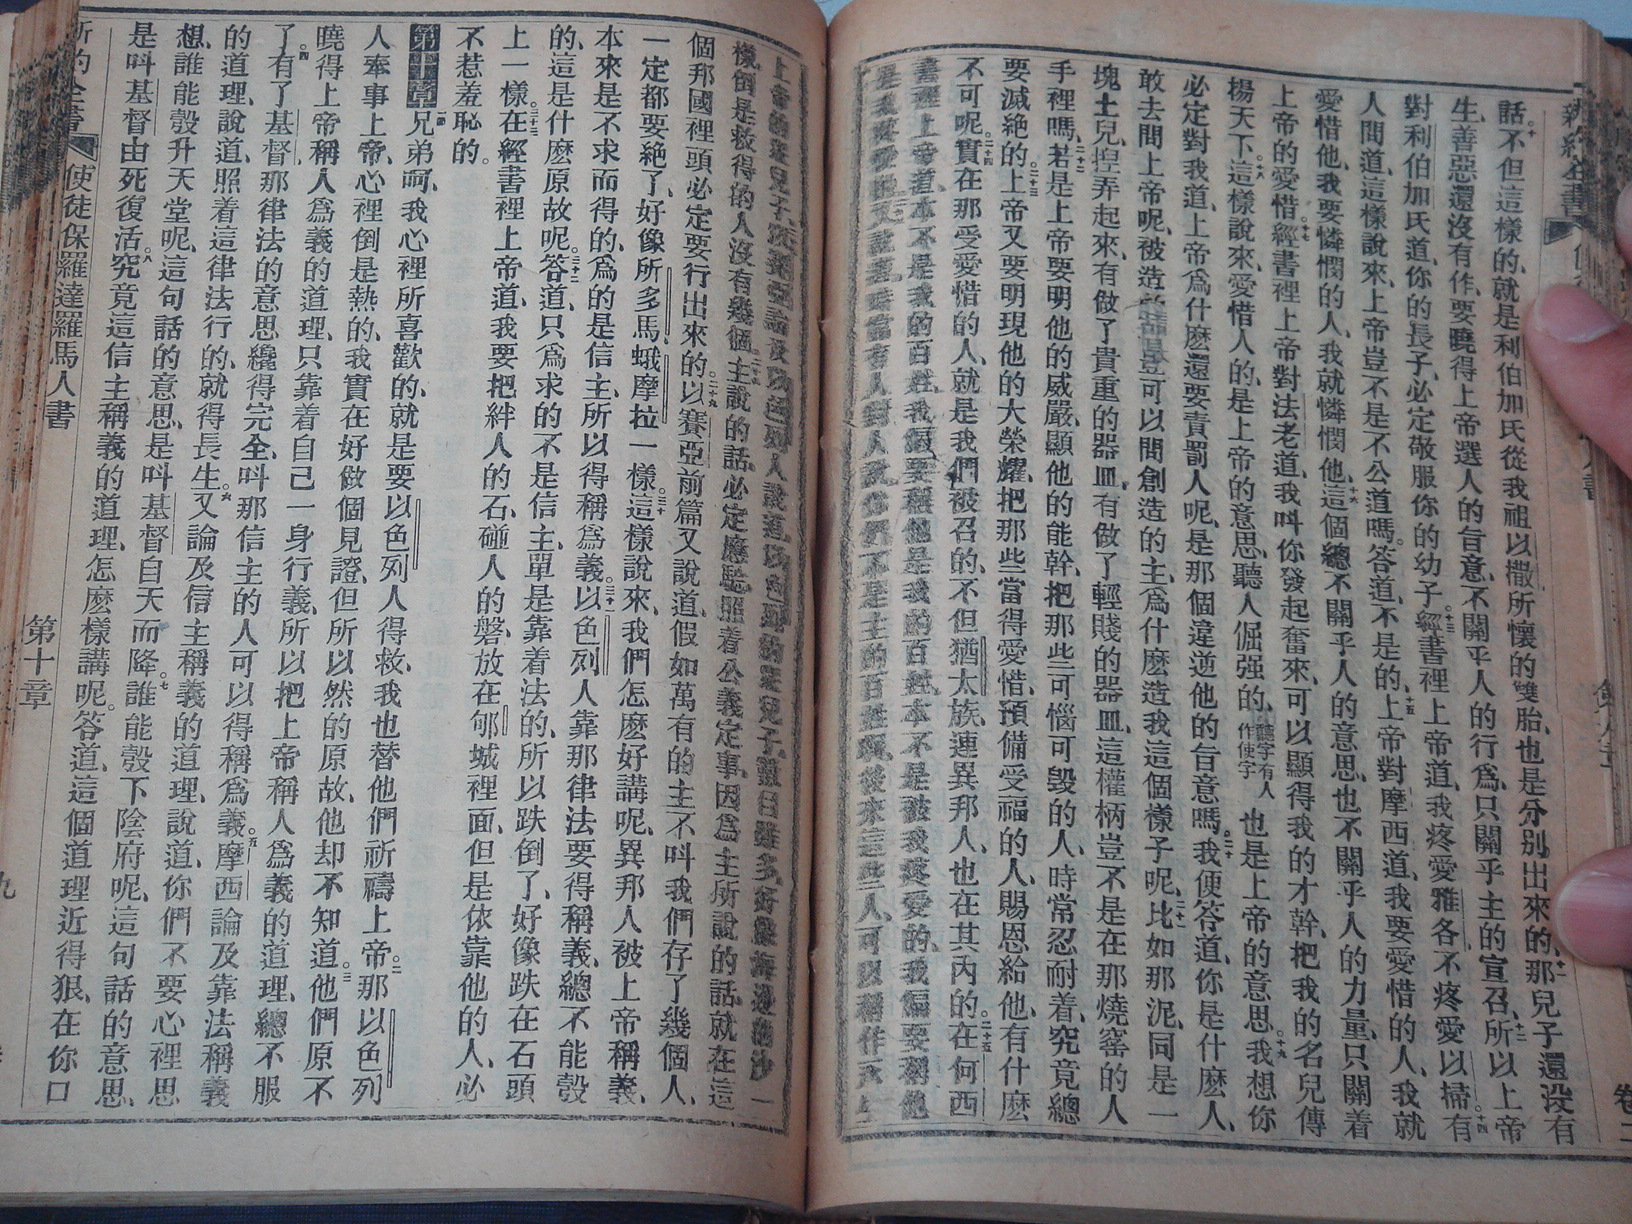 新約全書
卷二
話、十不但這樣的、就是利伯加氏從我祖以撒所懷的雙胎、也是分別出來的、十一那兒子還沒有
生、善惡還沒有作、要曉得上帝選人的旨意、不關乎人的行爲、只關乎主的宣召、十二所以上帝
對利伯加氏道、你的長子、必定敬服你的幼子。十三經書裡上帝道、我疼愛雅各、不疼愛以掃。十四有
人問道、這樣說來、上帝豈不是不公道嗎。答道、不是的、十五上帝對摩西道、我要愛惜的人、我就
愛惜他、我要憐憫的人、我就憐憫他、十六這個總不關乎人的意思、也不關乎人的力量、只關着
上帝的愛惜。十七經書裡上帝對法老道、我呌你發起奮來、可以顯得我的才幹、把我的名兒傳
揚天下、十八這樣說來、愛惜人的、是上帝的意思、聽人倔强的、聽字有人作使字也是上帝的意思。十九我想你
必定對我道、上帝爲什麽還要責罰人呢、是那個違逆他的旨意嗎、二十我便答道、你是什麽人、
敢去問上帝呢、被造的豈可以問創造的主、爲什麽造我這個樣子呢、二十一比如那泥、同是一
塊土兒、揑弄起來、有做了貴重的器皿、有做了輕賤的器皿、這權柄豈不是在那燒窰的人
手裡嗎、二十二若是上帝要明他的威嚴、顯他的能幹、把那些可惱可毀的人、時常忍耐着、究竟總
要滅絕的、二十三上帝又要明現他的大榮耀、把那些當得愛惜、預備受福的人、賜恩給他、有什麽
不可呢、二十四實在那受愛惜的人、就是我們被召的、不但猶太族、連異邦人、也在其內的。二十五在何西
書裡上帝道、本不是我的百姓、我偏要稱他是我的百姓、本不是被我疼愛的、我偏要稱他
樣、倒是救得的人沒有幾個、二十八主說的話、必定應驗、照着公義定事、因爲主所說的話、就在這
個邦國裡頭必定要行出來的、二十九以賽亞前篇又說道、假如萬有的主不呌我們存了幾個人、
一定都要絕了、好像所多馬蛾摩拉一樣。三十這樣說來、我們怎麽好講呢、異邦人被上帝稱義、
本來是不求而得的、爲的是信主、所以得稱爲義。三十一以色列人靠那律法要得稱義、總不能彀
的、這是什麽原故呢。三十二答道、只爲求的不是信主、單是靠着法的、所以跌倒了、好像跌在石頭
上一樣。三十三在經書裡上帝道、我要把絆人的石、碰人的磐、放在郇城裡面、但是依靠他的人、必
不惹羞恥的。
第十章一兄弟呵、我心裡所喜歡的、就是要以色列人得救、我也替他們祈禱上帝。二那以色列
人奉事上帝、心裡倒是熱的、我實在好做個見證、但所以然的原故、他却不知道。三他們原不
曉得上帝稱人爲義的道理、只靠着自己一身行義、所以把上帝稱人爲義的道理、總不服
了。四有了基督、那律法的意思纔得完全、呌那信主的人可以得稱爲義。五摩西論及靠法稱義
的道理、說道、照着這律法行的、就得長生。六又論及信主稱義的道理、說道、你們不要心裡思
想、誰能彀升天堂呢、這句話的意思、是呌基督自天而降。七誰能彀下陰府呢、這句話的意思、
是呌基督由死復活。八究竟這信主稱義的道理、怎麽樣講呢。答道、這個道理近得狠、在你口
新約全書 使徒保羅達羅馬人書 第十章 九